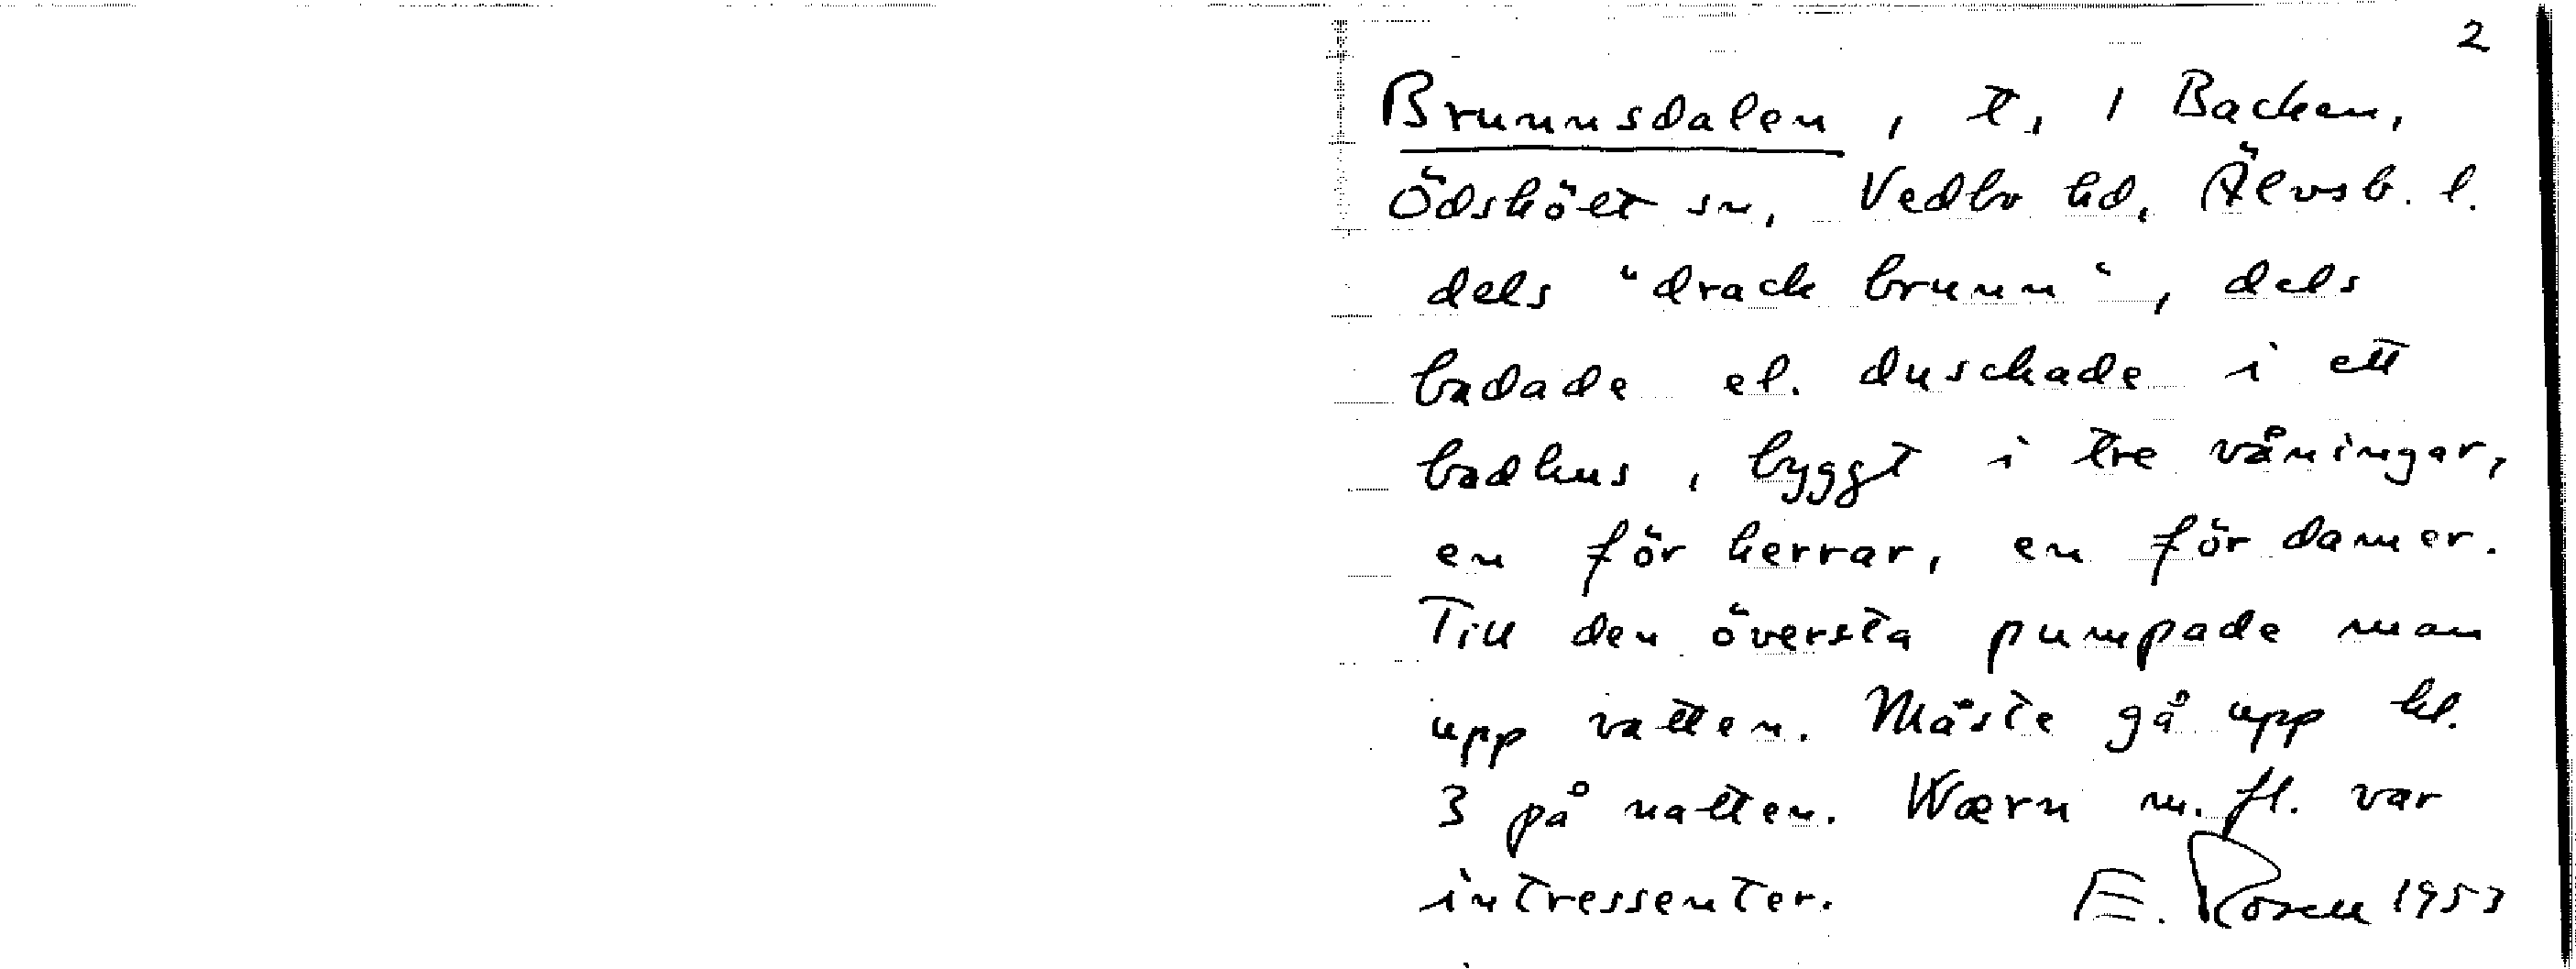 2
Brunnsdalen, t, 1 Backen,
Ödskölt sn, Vedbo hd, Älvsb. l.
dels "drack brunn", dels
badade el. duschade i ett
badhus, byggt i tre våningar,
en för herrar, en för damer.
Till den översta pumpade man
upp vatten. Måste gå upp kl.
3 på natten. Wærn m. fl. var
intressenter. E. Rosell 1953